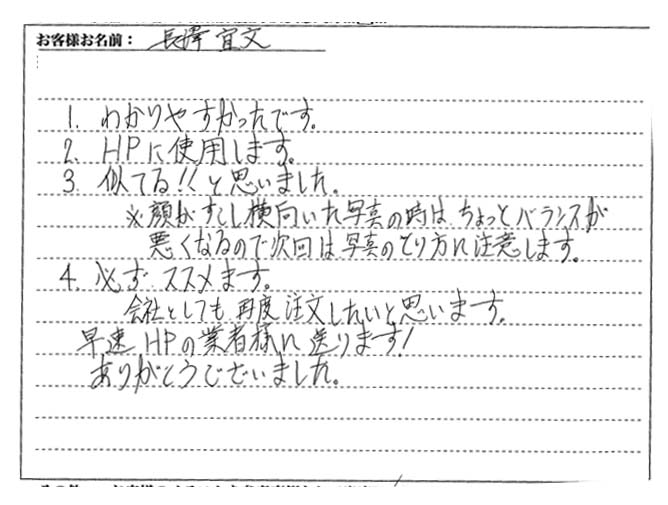 お客様お名前： 長澤 宜文
1. わかりやすかったです。
2. HPに使用します。
3. 似てる!!と思いました。
※顔がすこし横向いた写真の時はちょっとバランスが
悪くなるので次回は写真のとり方に注意します。
4. 必ずススメます。
会社としても再度注文したいと思います。
早速HPの業者様に送ります!
ありがとうございました。